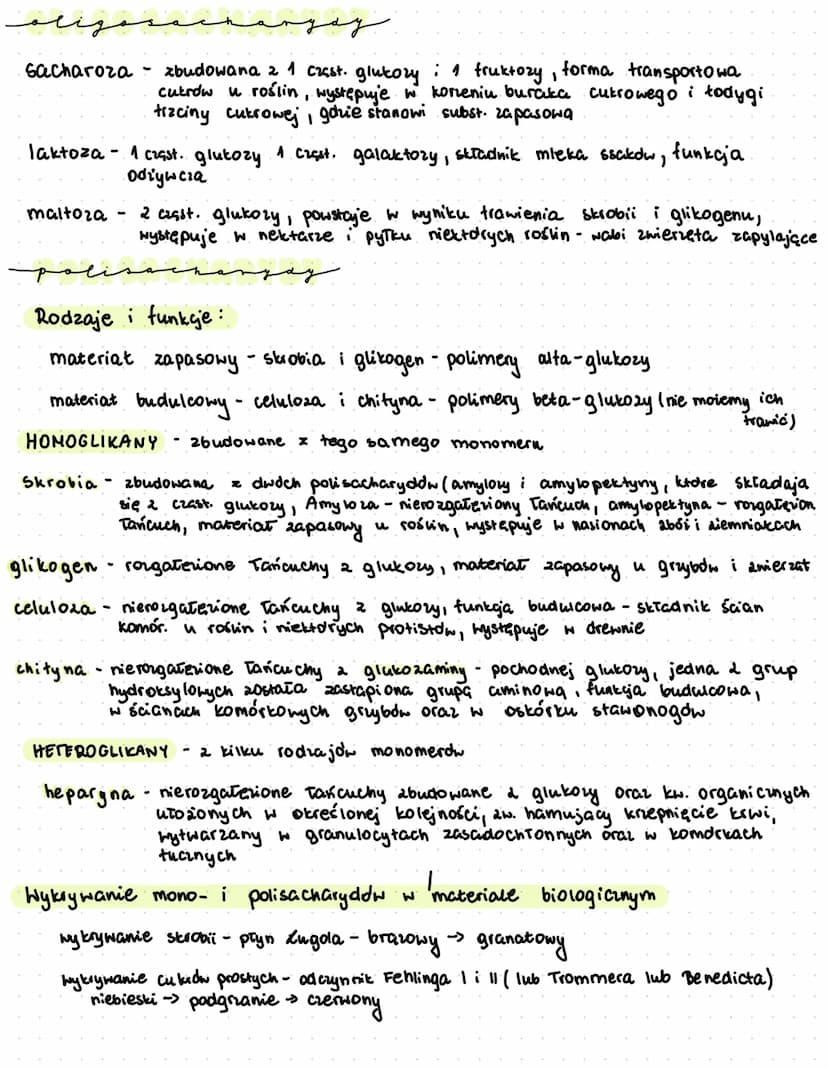 oligosacharydy
sacharoza - zbudowana z 1 cząst. glukozy i 1 fruktozy, forma transportowa
cukrów u roślin, występuje w korzeniu buraka cukrowego i łodygi
trzciny cukrowej, gdzie stanowi subst. zapasową
laktoza - 1 cząst. glukozy 1 cząst. galaktozy, składnik mleka ssaków, funkcja
odżywcza
maltoza - 2 cząst. glukozy, powstaje w wyniku trawienia skrobii i glikogenu,
występuje w nektarze i pyłku niektórych roślin - wabi zwierzęta zapylające
polisacharydy
Rodzaje i funkcje:
materiał zapasowy - skrobia i glikogen - polimery alfa-glukozy
materiał budulcowy - celuloza i chityna - polimery beta-glukozy (nie możemy ich
trawić)
HOMOGLIKANY - zbudowane z tego samego monomeru
Skrobia - zbudowana z dwóch polisacharydów (amylozy i amylopektyny, które składają
się z cząst. glukozy, Amyloza - nierozgałęziony łańcuch, amylopektyna - rozgałęzion
łańcuch, materiał zapasowy u roślin, występuje w nasionach zbóż i ziemniakach
glikogen - rozgałęzione łańcuchy z glukozy, materiał zapasowy u grzybów i zwierząt
celuloza - nierozgałęzione łańcuchy z glukozy, funkcja budulcowa - składnik ścian
komór. u roślin i niektórych protistów, występuje w drewnie
chityna - nierozgałęzione łańcuchy z glukozaminy - pochodnej glukozy, jedna z grup
hydroksylowych została zastąpiona grupą aminową, funkcja budulcowa,
w ścianach komórkowych grzybów oraz w oskórku stawonogów
HETEROGLIKANY - z kilku rodzajów monomerów
heparyna - nierozgałęzione łańcuchy zbudowane z glukozy oraz kw. organicznych
ułożonych w określonej kolejności, zw. hamujący krzepnięcie krwi,
wytwarzany w granulocytach zasadochłonnych oraz w komórkach
tucznych
Wykrywanie mono- i polisacharydów w materiale biologicznym
wykrywanie skrobii - płyn Lugola - brązowy → granatowy
wykrywanie cukrów prostych - odczynnik Fehlinga I i II (lub Trommera lub Benedicta)
niebieski → podgrzanie → czerwony